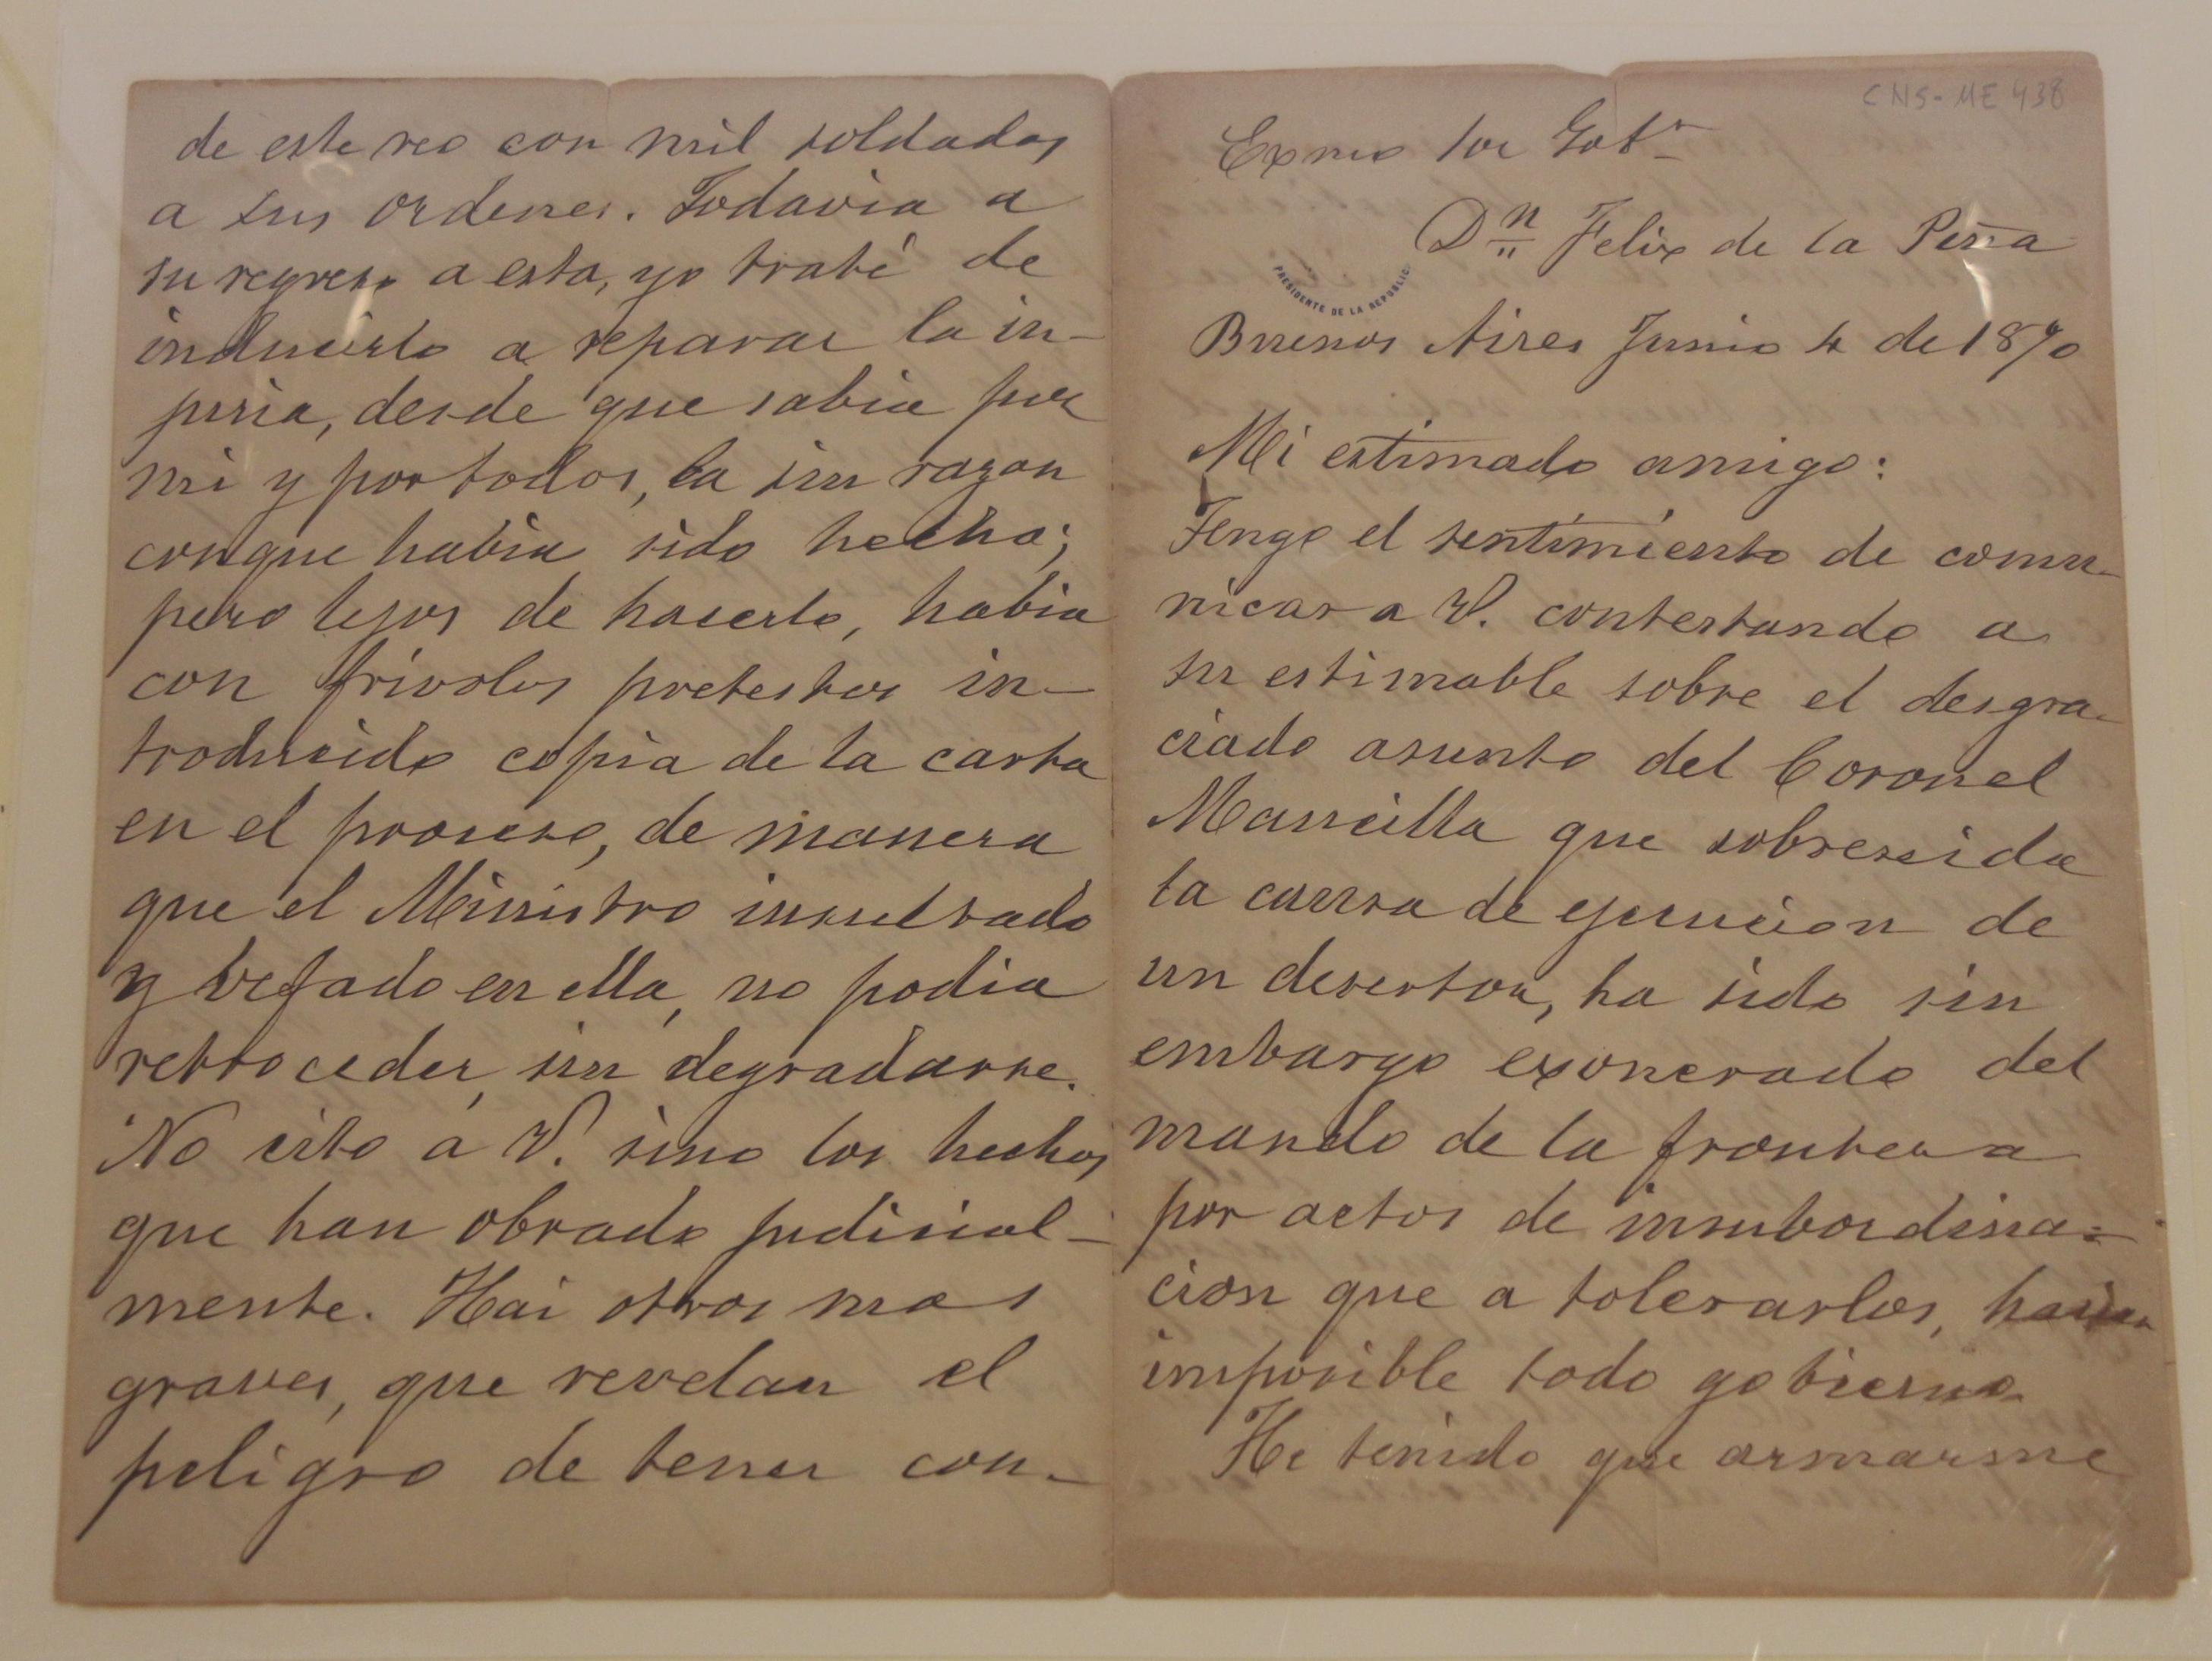 CNS-ME 938
Exmo Sor Gobr
Dn Felix de la Peña
PRESIDENTE DE LA REPUBLIC
Buenos Aires Junio 4 de 1870
Mi estimado amigo:
Tengo el sentimiento de comu-
nicar a V. contestando a
su estimable sobre el desgra-
ciado asunto del Coronel
Mansilla que sobreseida
la causa de ejecucion de
un desertor, ha sido sin
embargo exonerado del
mando de la frontera
por actos de insubordina-
cion que a tolerarlos, harian
imposible todo gobierno.
He tenido que armarme
de este reo con mil soldados
a sus ordenes. Todavia a
su regreso a esta, yo traté de
inducirlo a reparar la in-
juria, desde que sabia por
mi y por todos, la sin razon
conque habia sido hecha;
pero lejos de hacerlo, habia
con frivolos pretestos in-
troducido copia de la carta
en el proceso, de manera
que el Ministro insultado
y vejado en ella, no podia
retroceder, sin degradarse.
No cito a V. sino los hechos
que han obrado judicial-
mente. Hai otros mas
graves, que revelan el
peligro de tener con-